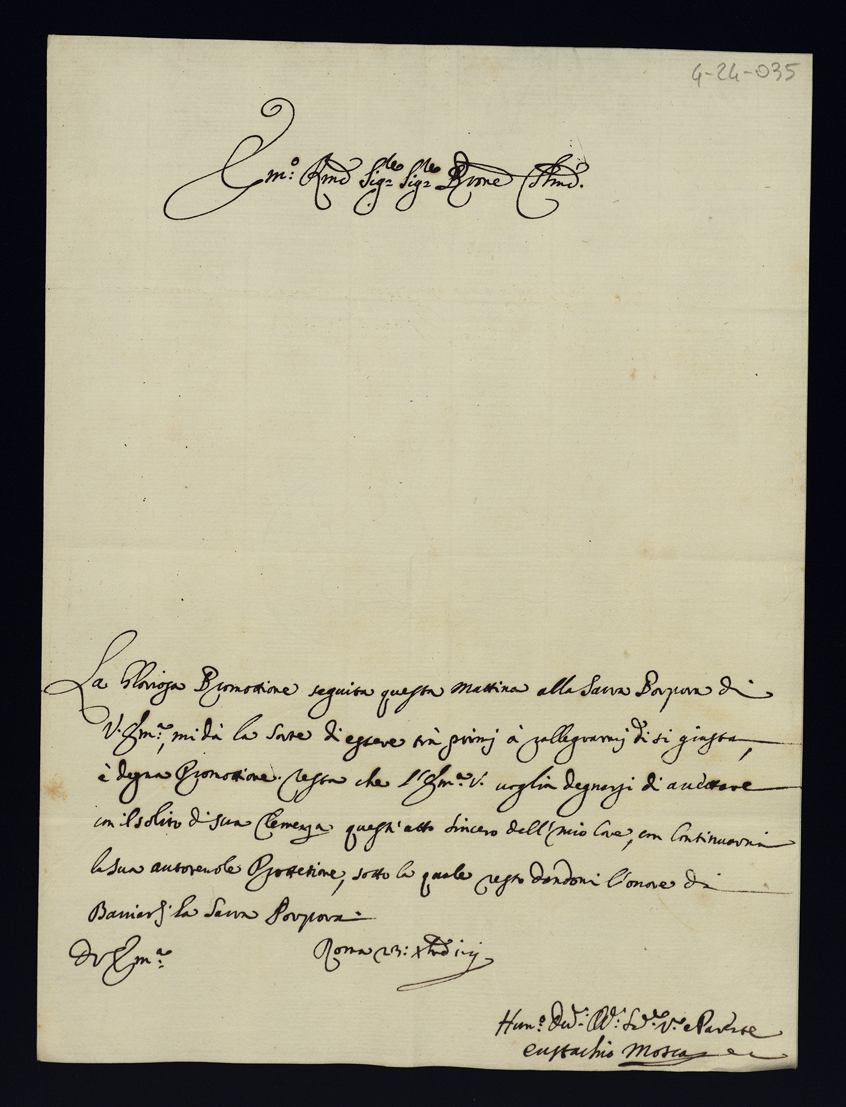 4-24-035
Em:o Rmo Sig:re Sig:re Prone Colmo.
La Gloriosa Promottione seguita questa mattina alla Sacra Porpora di
V. Em:a, mi dà la sorte di essere trà primj à rallegrarmj di si giusta,
è degna Promottione. resta che l'Em:a V. voglia degnarsi di accettare
con il solito di sua Clemenza quest'atto sincero dell mio Core, con Continuarmi
la sua autorevole Prottetione, sotto la quale resto dandomi l'onore di
Bacciarli la Sacra Porpora.
Di V. Em:a Roma 23: Xbre
Hum:o Dev:o Obl:o Ser:re V:o e Parente
Eustachio Mosca